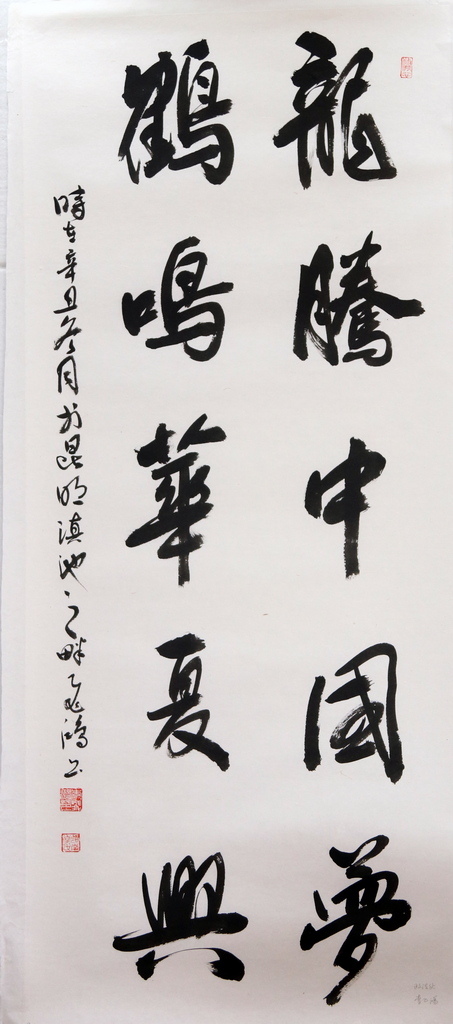 龍騰中國夢
鶴鳴華夏興
時在辛丑冬月於昆明滇池之畔飛鴻書